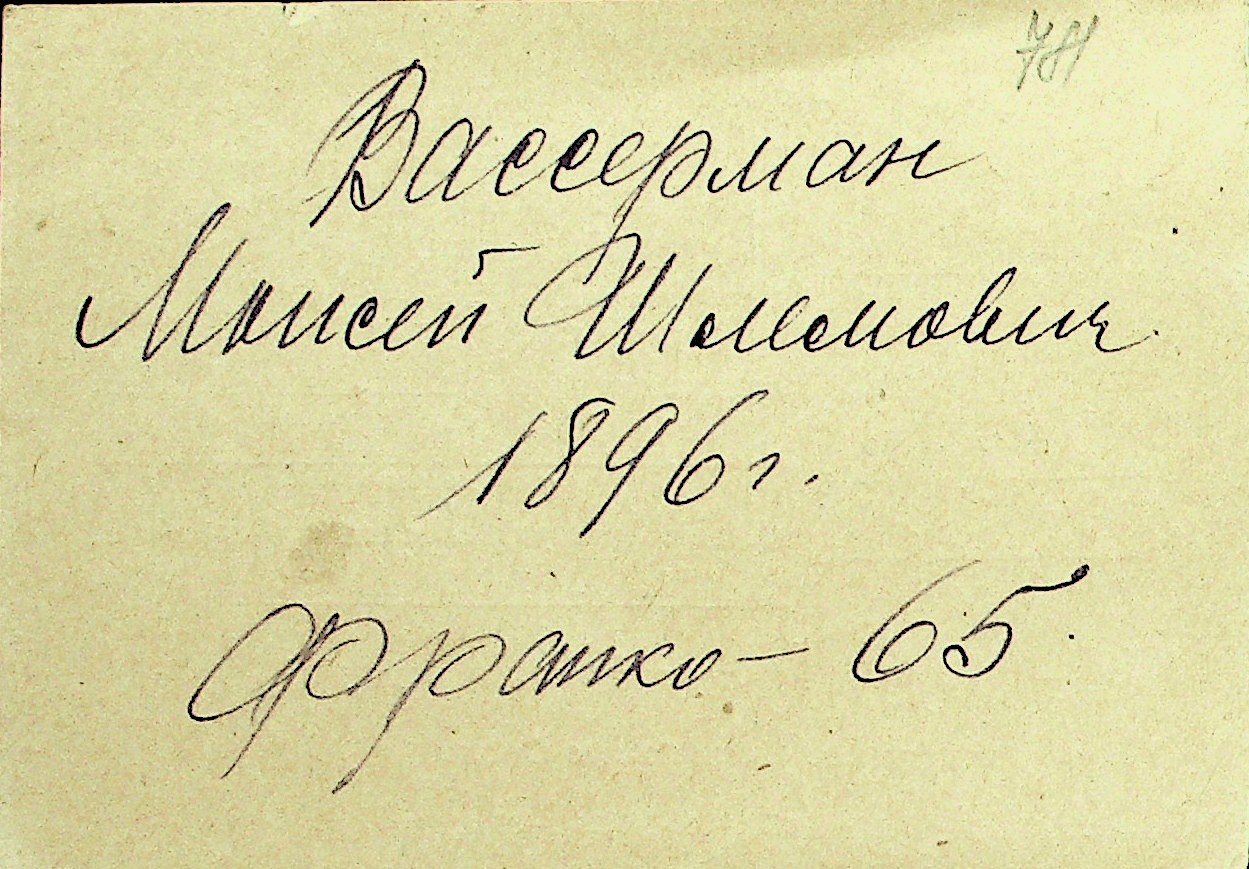 781
Вассерман
Моисей Шлемович
1896 г.
Франко – 65.